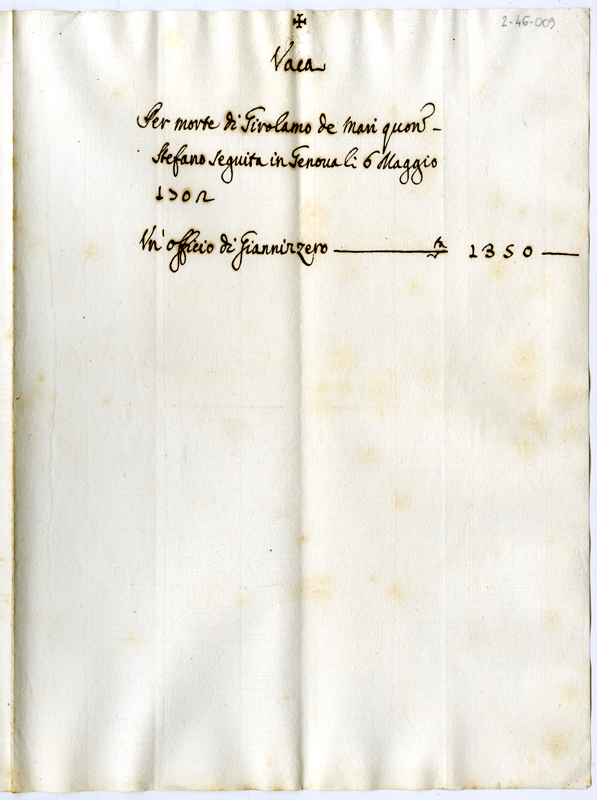 2-46-009
✠
Vaca
Per morte di Girolamo de Mari quon͠
Stefano seguita in Genova li 6 Maggio
1702
Un' officio di Giannizzero — 1350 —